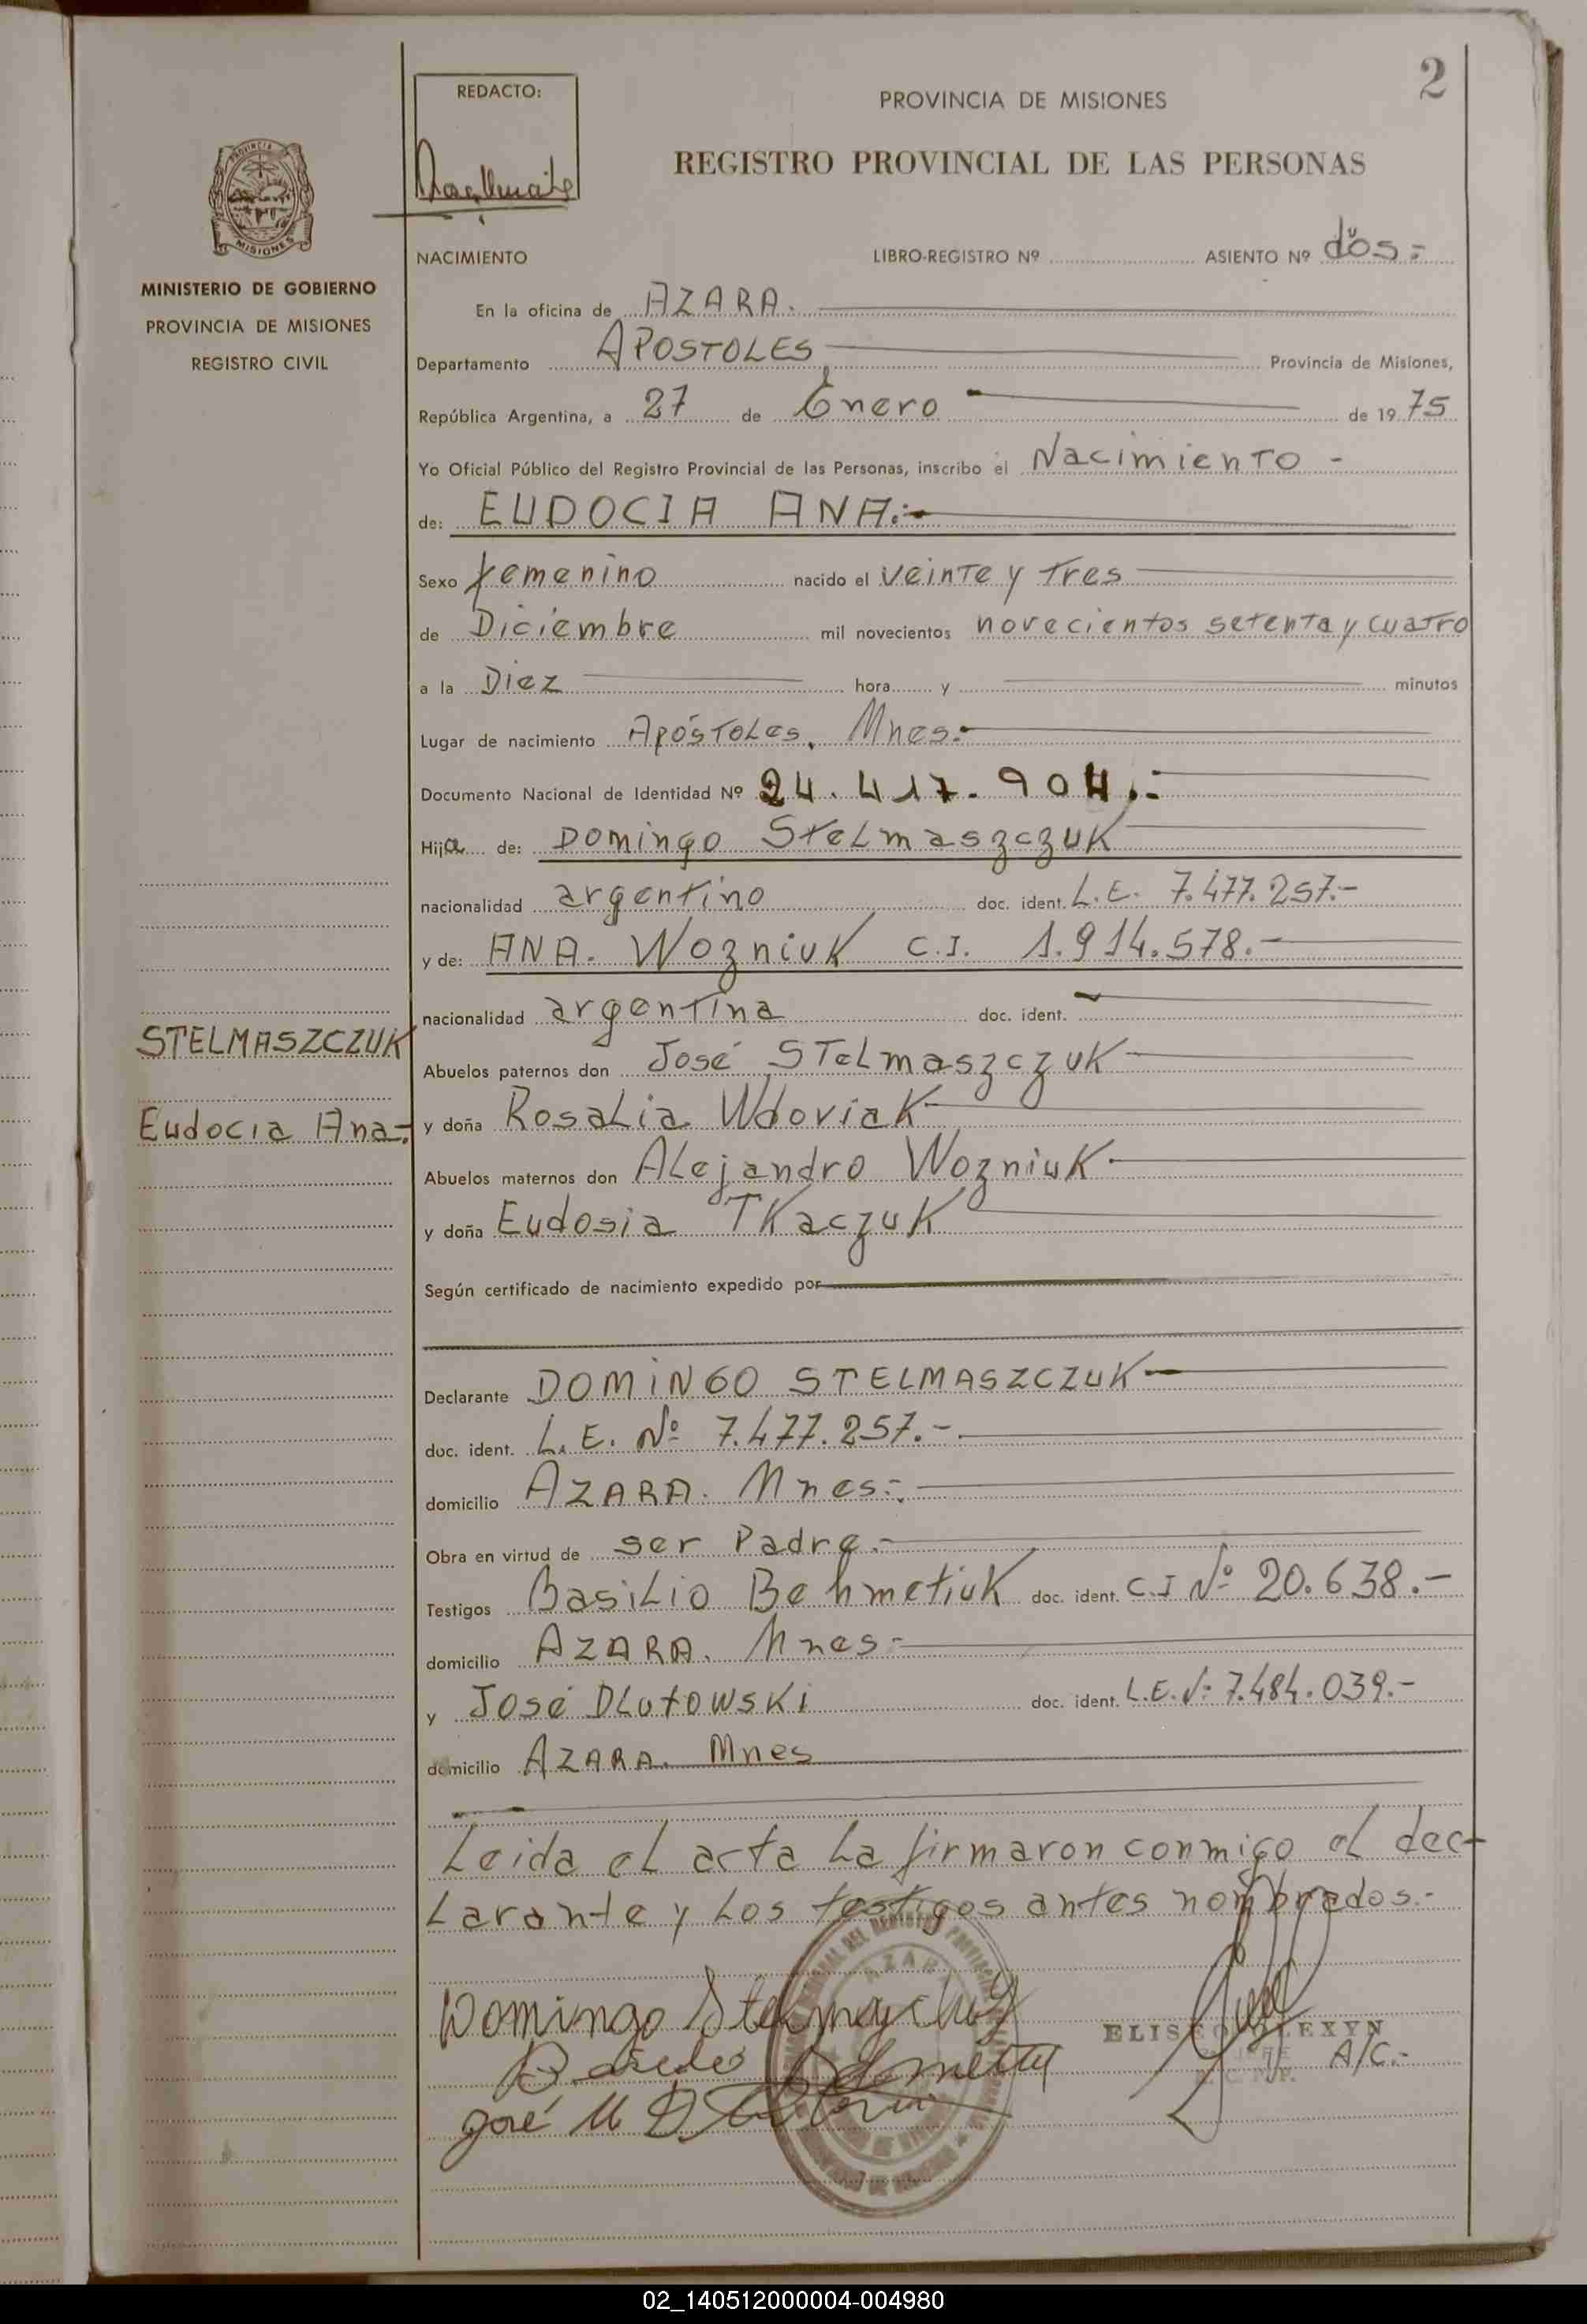 2
REDACTO:
PROVINCIA DE MISIONES
REGISTRO PROVINCIAL DE LAS PERSONAS
PROVINCIA
MISIONES
MINISTERIO DE GOBIERNO
PROVINCIA DE MISIONES
REGISTRO CIVIL
NACIMIENTO LIBRO-REGISTRO Nº ASIENTO Nº dos.-
En la oficina de AZARA.
Departamento APOSTOLES Provincia de Misiones,
República Argentina, a 27 de Enero de 1975
Yo Oficial Público del Registro Provincial de las Personas, inscribo el Nacimiento -
de: EUDOCIA ANA.-
Sexo femenino nacido el veinte y tres
de Diciembre mil novecientos novecientos setenta y cuatro
a la Diez hora y minutos
Lugar de nacimiento Apóstoles, Mnes.-
Documento Nacional de Identidad Nº 24.417.904.-
Hija de: Domingo Stelmaszczuk
nacionalidad argentino doc. ident. L.E. 7.477.257.-
y de: ANA. Wozniuk C.I. 1.914.578.-
nacionalidad argentina doc. ident.
STELMASZCZUK
Abuelos paternos don José Stelmaszczuk
Eudocia Ana.-
y doña Rosalia Wdoviak
Abuelos maternos don Alejandro Wozniuk.
y doña Eudosia Tkaczuk
Según certificado de nacimiento expedido por
Declarante DOMINGO STELMASZCZUK
doc. ident. L.E. Nº 7.477.257.-
domicilio AZARA. Mnes.-
Obra en virtud de ser Padre.-
Testigos Basilio Behmetiuk doc. ident. C.I Nº 20.638.-
domicilio AZARA. Mnes.-
y José Dlutowski doc. ident. L.E. Nº 7.484.039.-
domicilio AZARA. Mnes
Leida el acta la firmaron conmigo el dec-
larante y los testigos antes nombrados.-
AZARA
Domingo
ELISEO OLEXYN
JEFE
A/C.-
José M
02_140512000004-004980